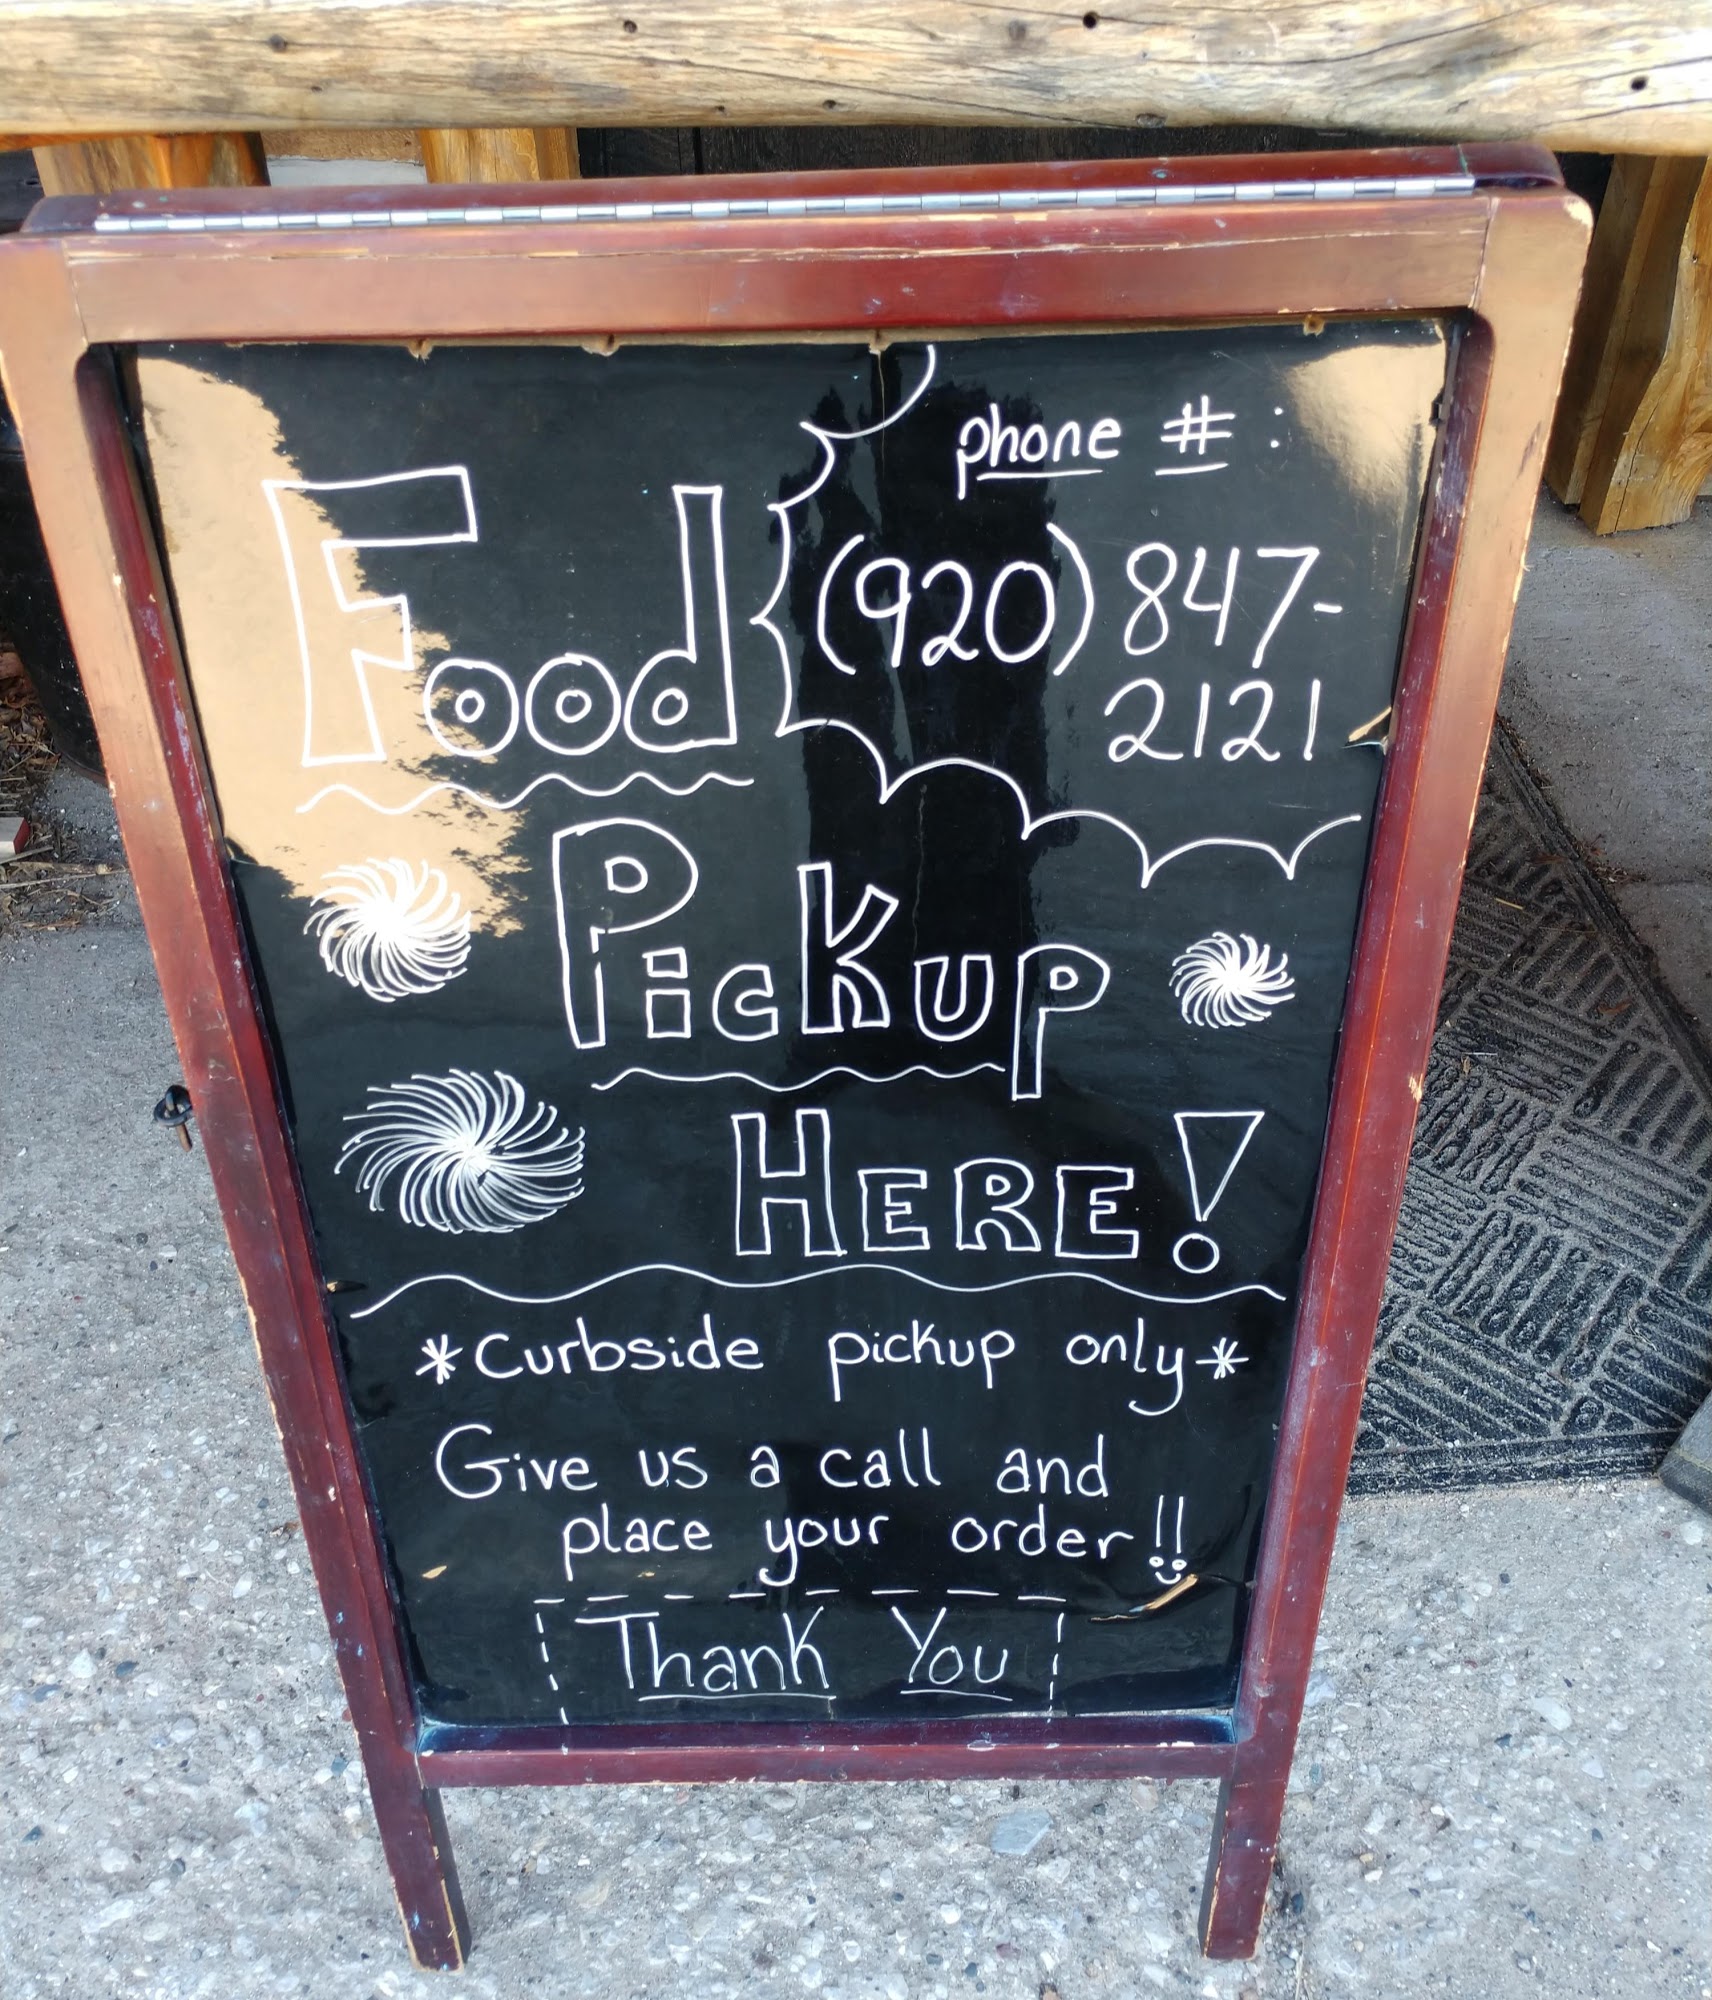 phone # :
(920) 847-
2121
Food
Pickup
HERE!
*Curbside pickup only*
Give us a call and
place your order!!
Thank You